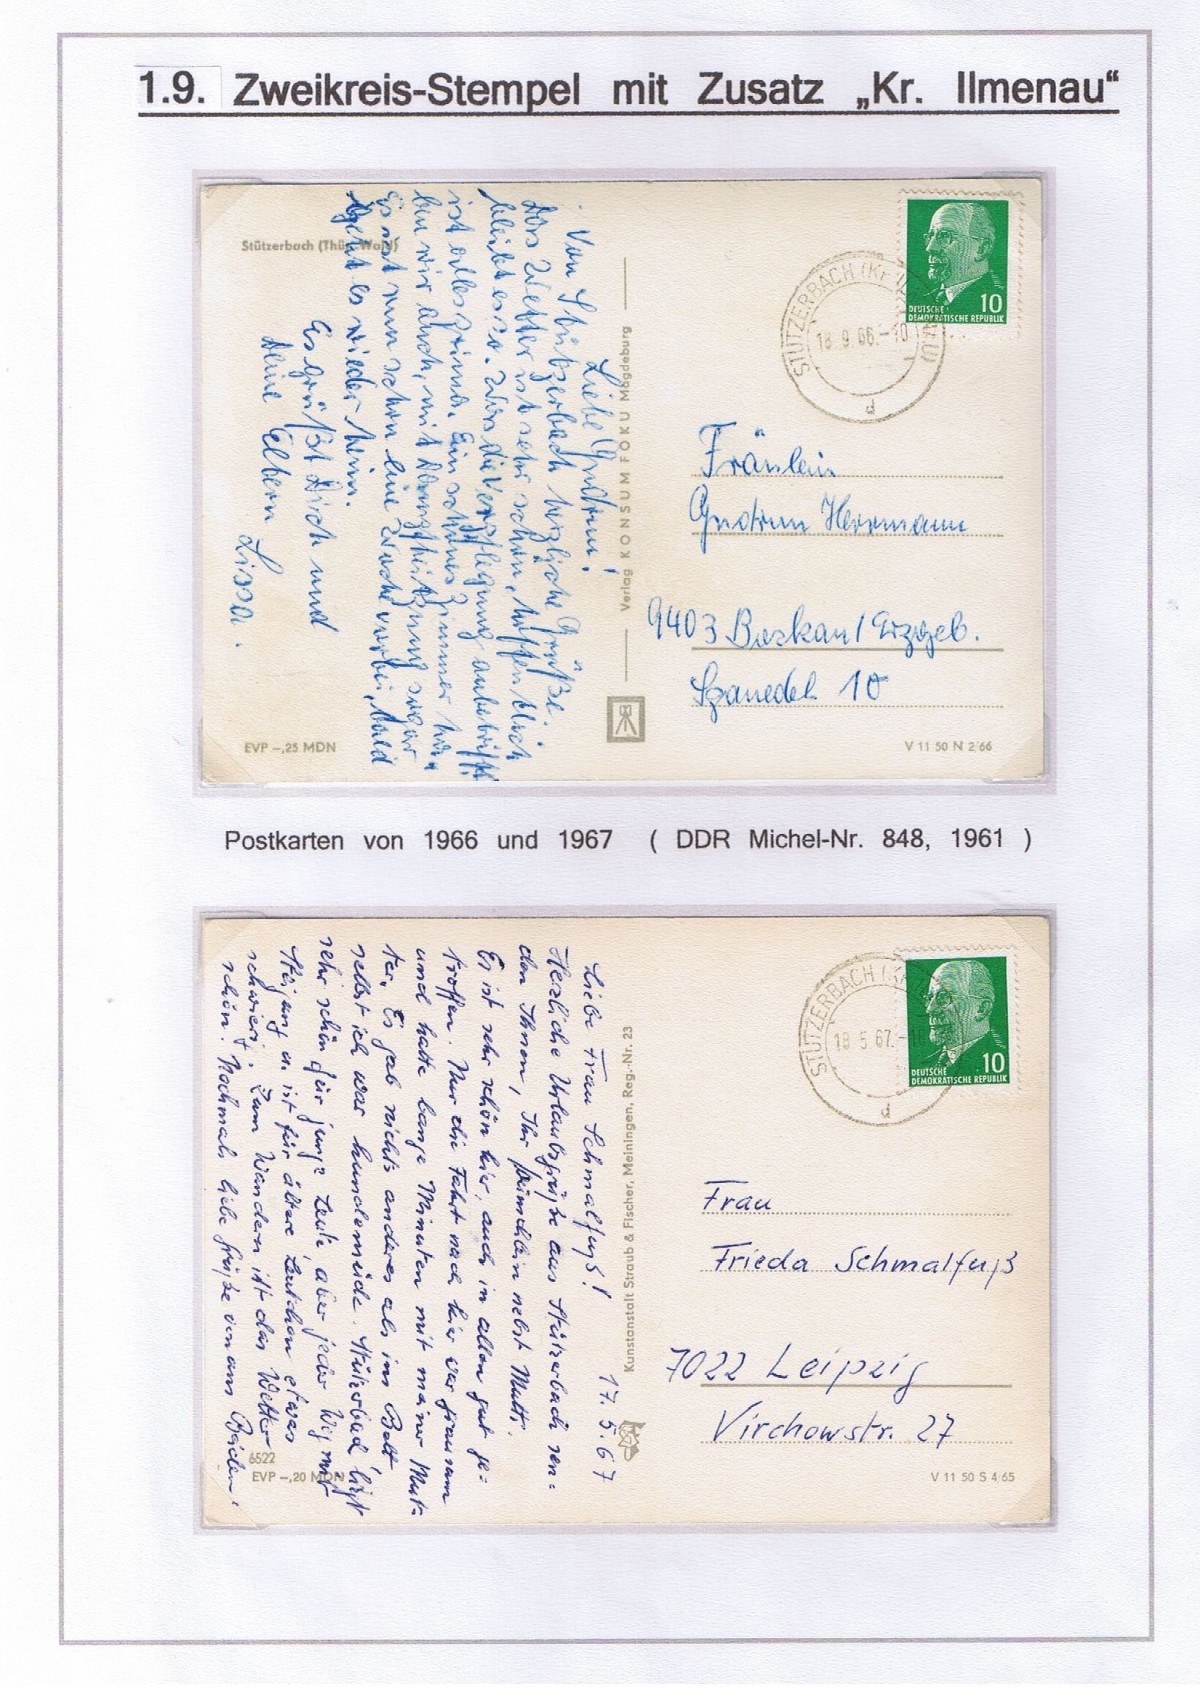 1.9. Zweikreis-Stempel mit Zusatz „Kr. Ilmenau“
Stützerbach (Thür. Wald)
Liebe Gudrun!
Von Stützerbach herzliche Grüße.
Das Wetter ist sehr schön, hoffentlich
bleibt es so. Was die Verpflegung anbetrifft
ist alles prima. Ein schönes Zimmer ha-
ben wir auch, mit sogar
Es ist nun schon eine Woche vorbei, bald
geht es wieder heim.
Es grüßt Dich und
Deine Eltern
Verlag KONSUM FOKU Magdeburg
EVP –,25 MDN
STÜTZERBACH (KR ILMENAU)
18.9.66.-10
d
10
DEUTSCHE
DEMOKRATISCHE REPUBLIK
Fräulein
Gudrun Herrmann
9403 Bockau / Erzgeb.
10
V 11 50 N 2/66
Postkarten von 1966 und 1967 ( DDR Michel-Nr. 848, 1961 )
17. 5. 67
Liebe Frau Schmalfuß!
Herzliche Urlaubsgrüße aus Stützerbach sen-
den Ihnen, Ihr nebst Mutti.
Es ist sehr schön hier, auch in allem gut ge-
troffen. Nur die Fahrt nach hier war grausam
und hatte bange Minuten mit meiner Mut-
ter. Es gab nichts anderes als ins Bett
selbst ich war hundemüde. Stützerbach liegt
sehr schön für junge Leute aber jeder Weg mit
Steigung u. ist für ältere Leutchen etwas
schwierig. Zum Wandern ist das Wetter
schön. Nochmals liebe Grüße von uns Beiden.
6522
EVP –,20 MDN
Kunstanstalt Straub & Fischer, Meiningen, Reg.-Nr. 23
STÜTZERBACH
18.5.67.-
d
10
DEUTSCHE
DEMOKRATISCHE REPUBLIK
Frau
Frieda Schmalfuß
7022 Leipzig
Virchowstr. 27
V 11 50 S 4/65